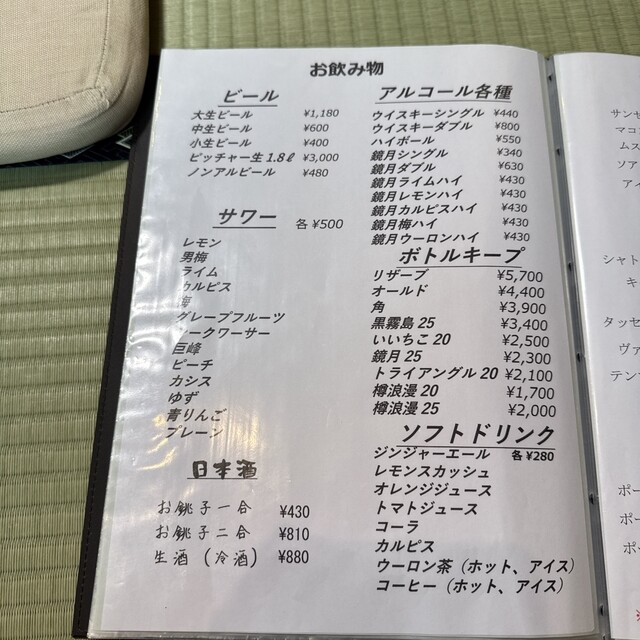 お飲み物
ビール
大生ビール ¥1,180
中生ビール ¥600
小生ビール ¥400
ピッチャー生1.8ℓ ¥3,000
ノンアルビール ¥480
サワー 各 ¥500
レモン
男梅
ライム
カルピス
梅
グレープフルーツ
シークワーサー
巨峰
ピーチ
カシス
ゆず
青りんご
プレーン
日本酒
お銚子一合 ¥430
お銚子二合 ¥810
生酒(冷酒) ¥880
アルコール各種
ウイスキーシングル ¥440
ウイスキーダブル ¥800
ハイボール ¥550
鏡月シングル ¥340
鏡月ダブル ¥630
鏡月ライムハイ ¥430
鏡月レモンハイ ¥430
鏡月カルピスハイ ¥430
鏡月梅ハイ ¥430
鏡月ウーロンハイ ¥430
ボトルキープ
リザーブ ¥5,700
オールド ¥4,400
角 ¥3,900
黒霧島 25 ¥3,400
いいちこ 20 ¥2,500
鏡月 25 ¥2,300
トライアングル 20 ¥2,100
樽浪漫 20 ¥1,700
樽浪漫 25 ¥2,000
ソフトドリンク
ジンジャーエール 各 ¥280
レモンスカッシュ
オレンジジュース
トマトジュース
コーラ
カルピス
ウーロン茶(ホット、アイス)
コーヒー(ホット、アイス)
サンセ
マコ
ムス
ソア
アン
シャト
キ
タッセ
ヴァ
テンプ
ポー
ポー
ポー